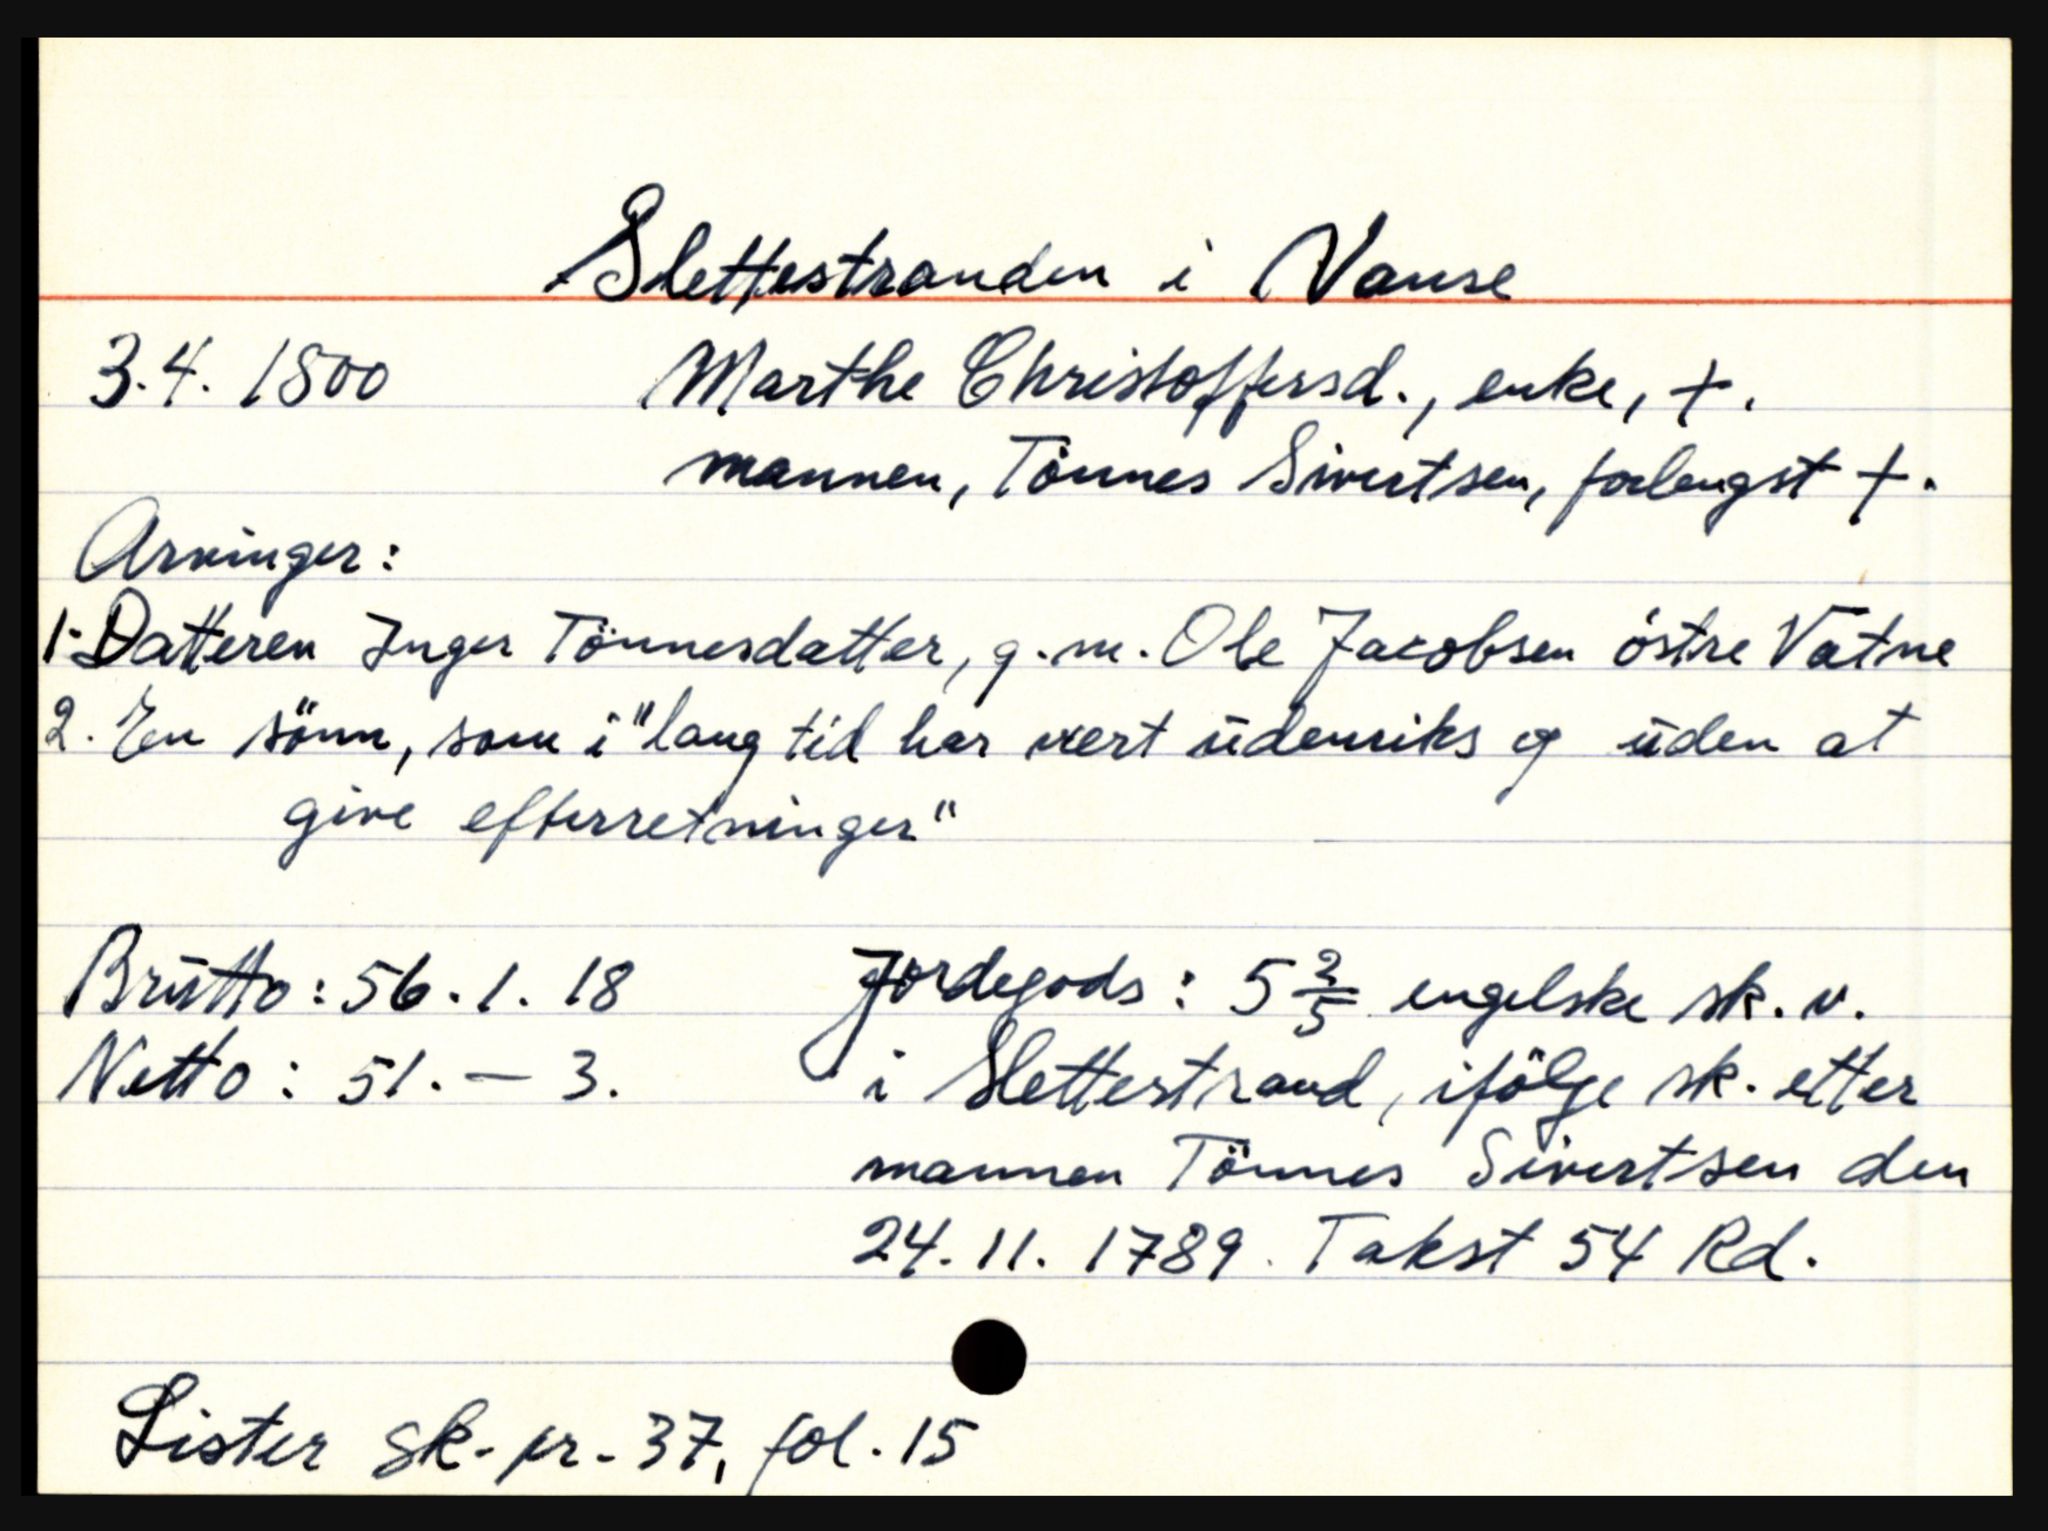 Slettestranden i Vanse
3.4. 1800 Marthe Christoffersd., enke, †.
mannen, Tönnes Sivertsen, forlengst †.
Arvinger:
1. Datteren Inger Tönnesdatter, g.m. Ole Jacobsen östre Vatne
2. En sönn, som i "lang tid har vert ūdenriks og ūden at
give efterretninger"
Brūtto: 56. 1. 18 Jordegods: 5 2/5 engelske sk. v.
Netto: 51. — 3. i Slettestrand, ifölge sk. etter
mannen Tönnes Sivertsen den
24. 11. 1789. Takst 54 Rd.
Lister sk. pr. 37, fol. 15